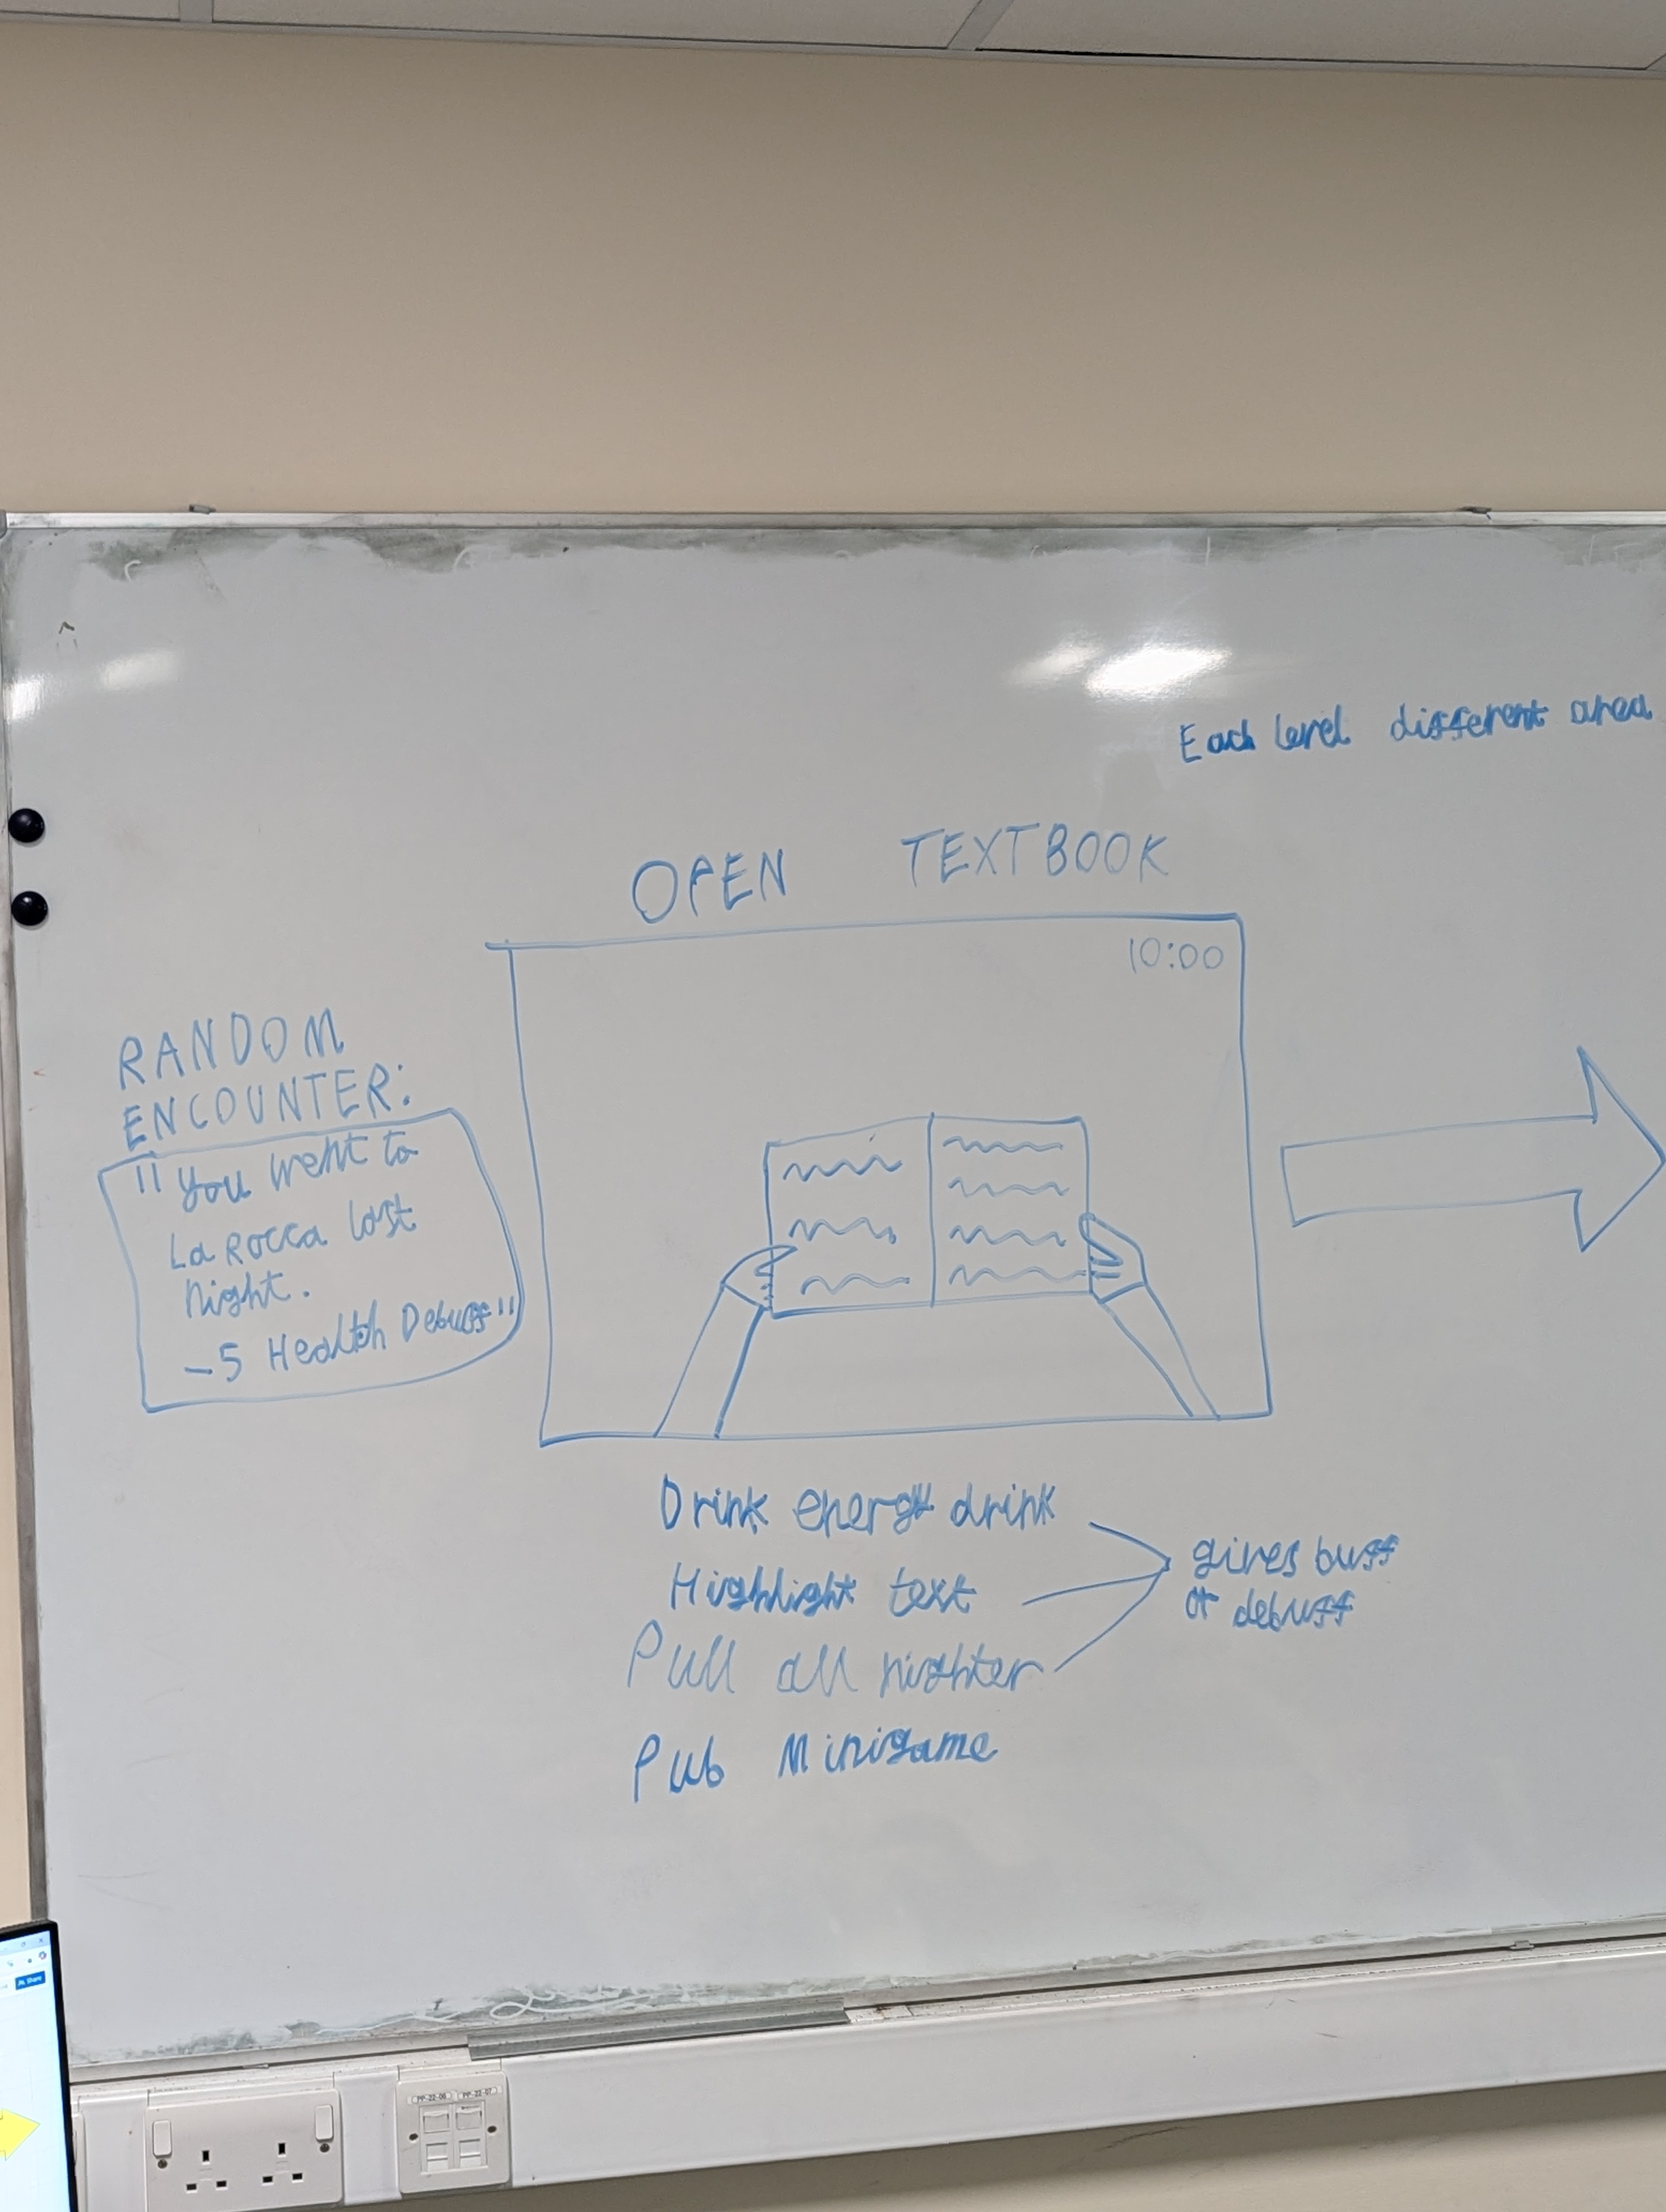 Each level different area
OPEN TEXTBOOK
10:00
RANDOM
ENCOUNTER:
"You went to
La Rocca last
night.
-5 Health Debuff"
Drink energy drink
Highlight text
Pull all nighter
Pub Minigame
gives buff
or debuff
Share
PP-22-06 PP-22-07